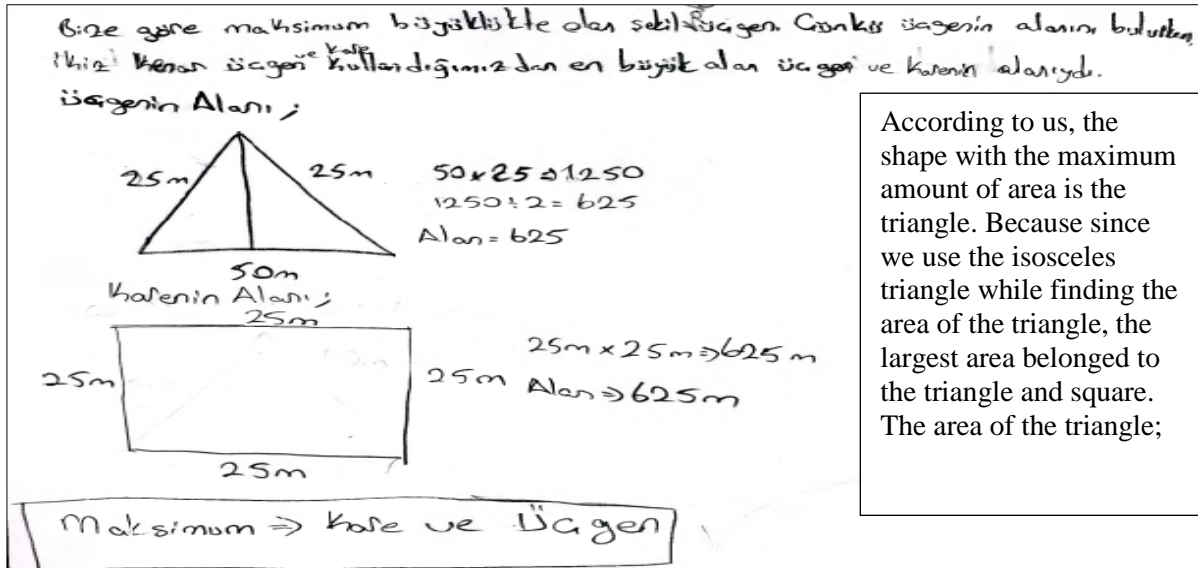 Bize göre maksimum büyüklükte olan şekil üçgen. Çünkü üçgenin alanını bulurken,
ikiz kenar üçgen ve kare kullandığımızdan en büyük alan üçgen ve karenin alanıydı.
üçgenin Alanı ;
25m
25m
50 x 25 ⇒ 1250
1250 : 2 = 625
Alan = 625
50m
Karenin Alanı ;
25m
25m
25m
25m x 25m ⇒ 625 m
Alan ⇒ 625m
25m
Maksimum ⇒ Kare ve Üçgen
According to us, the
shape with the maximum
amount of area is the
triangle. Because since
we use the isosceles
triangle while finding the
area of the triangle, the
largest area belonged to
the triangle and square.
The area of the triangle;